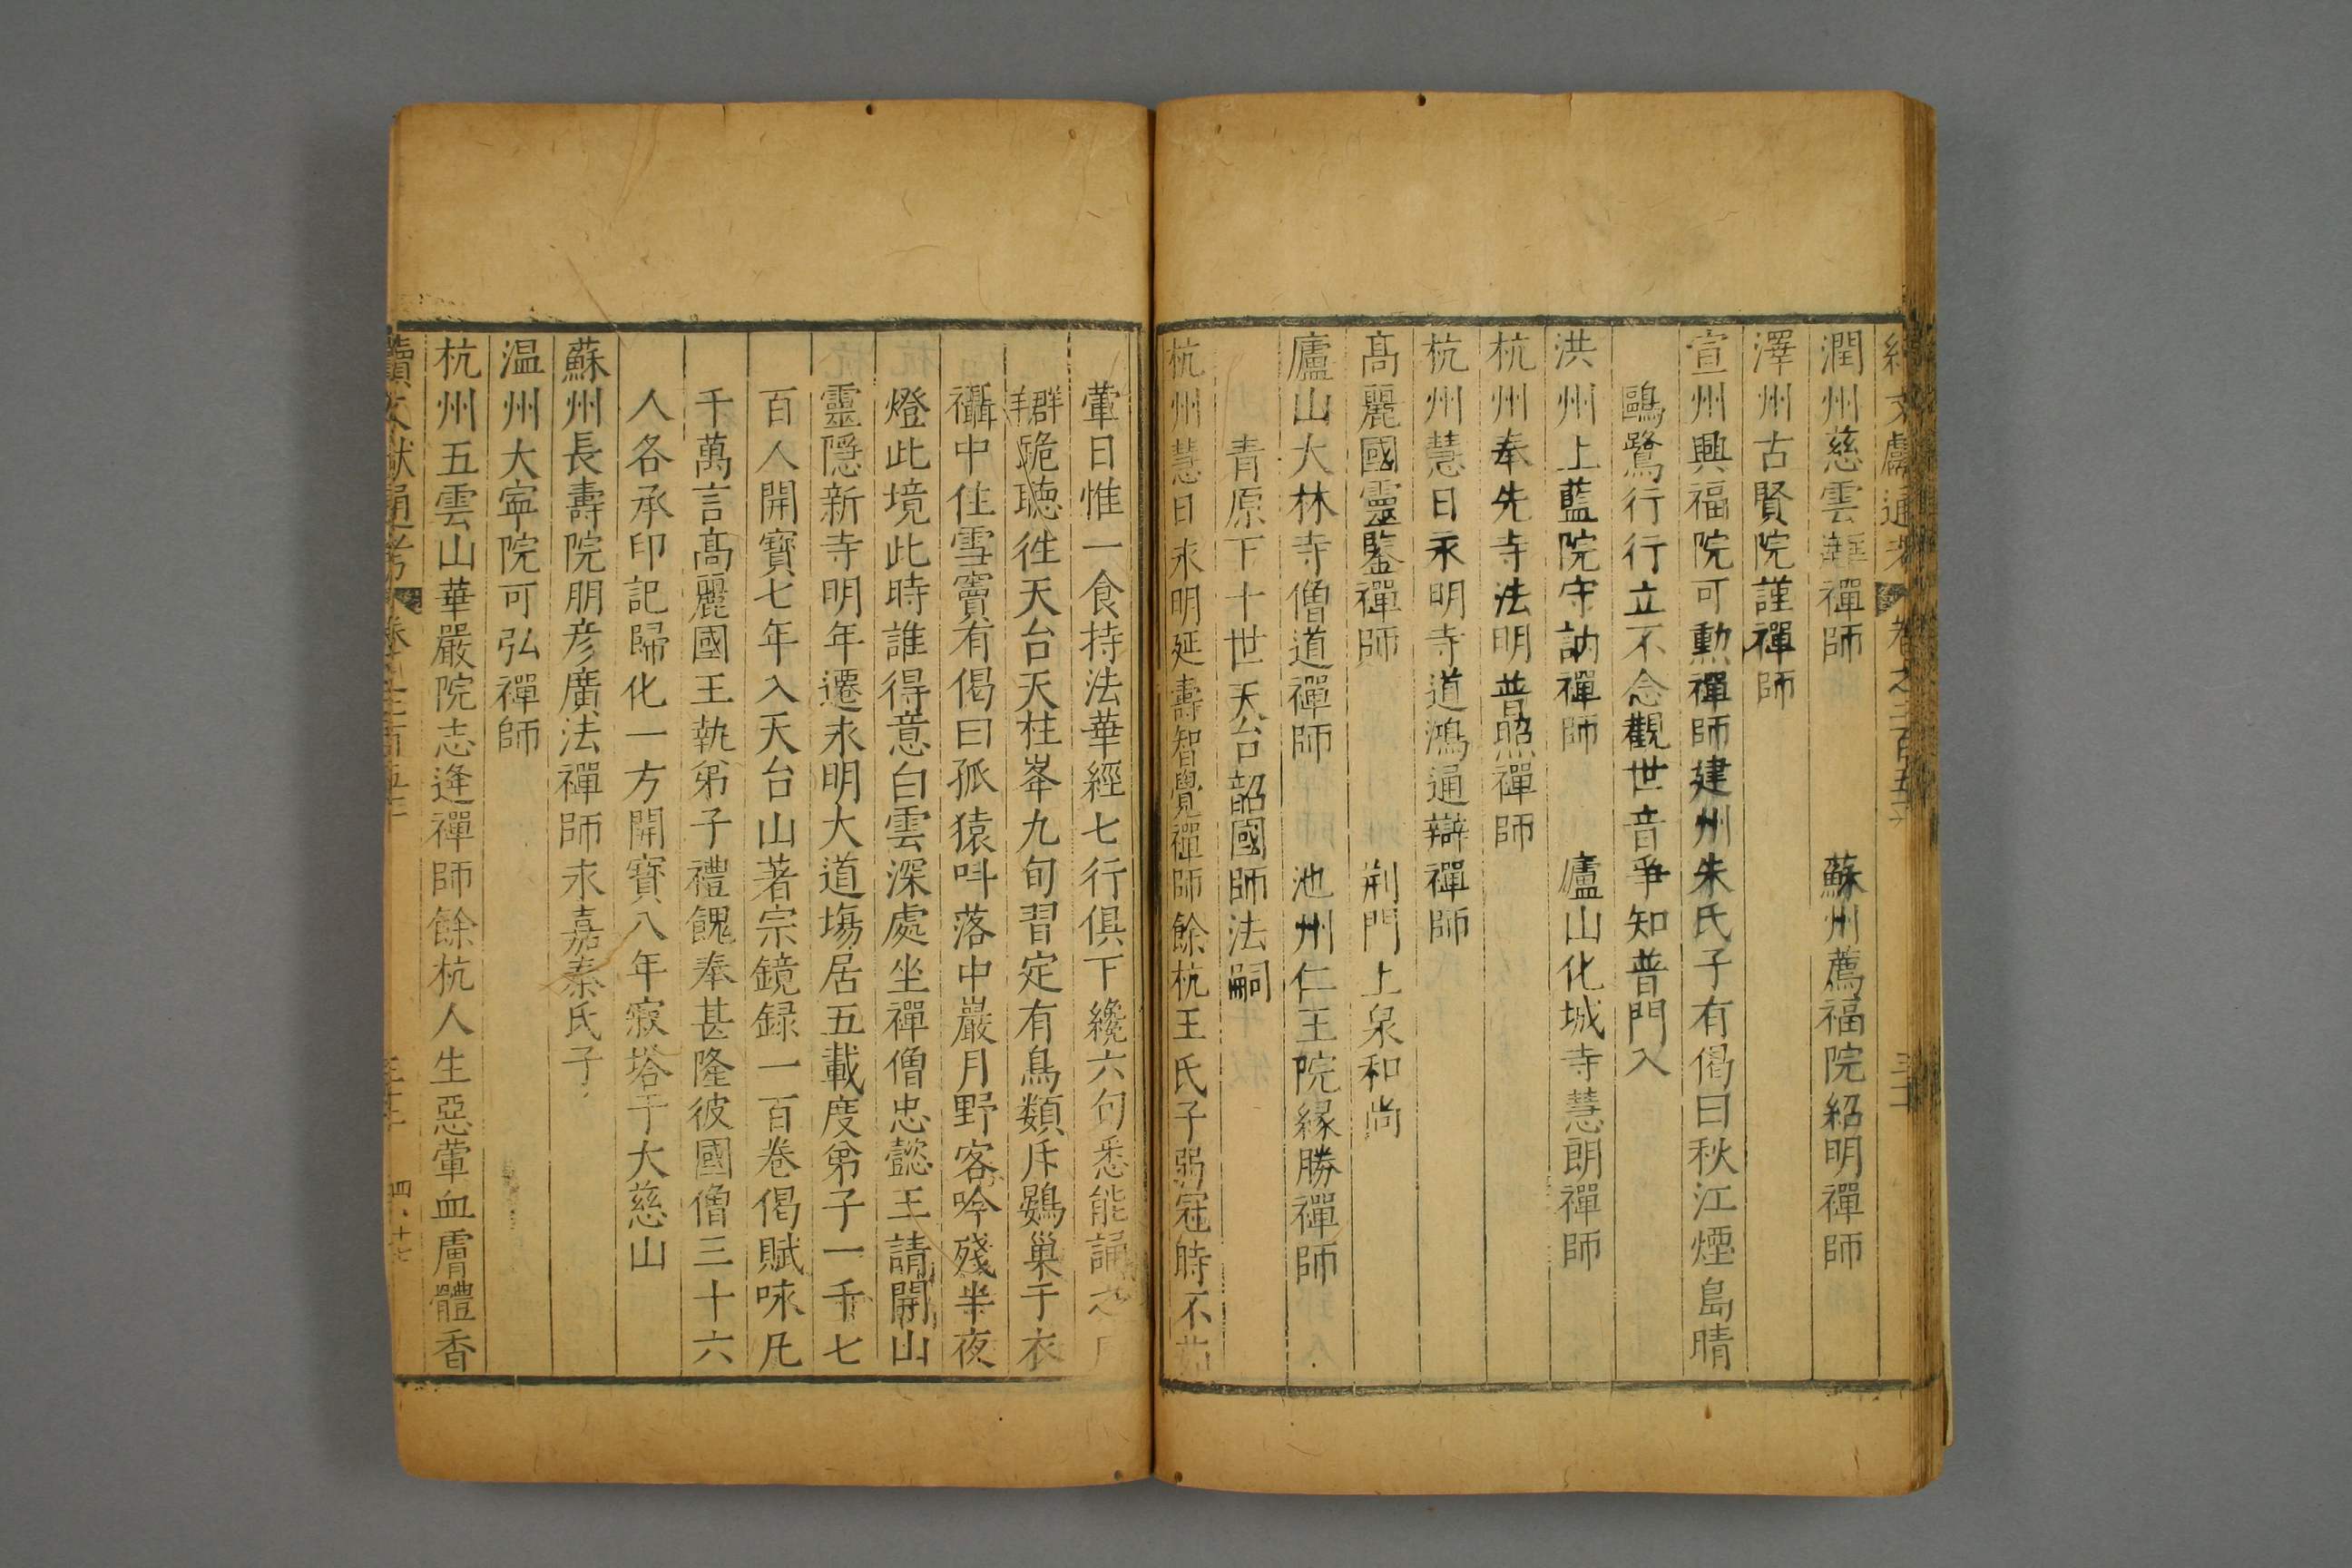 續文獻通考 卷之二百五十
潤州慈雲禪師 蘇州薦福院紹明禪師
澤州古賢院謹禪師
宣州興福院可勲禪師建州朱氏子有偈曰秋江煙島晴
鷗鷺行行立不念觀世音爭知普門入
洪州上藍院守訥禪師 廬山化城寺慧朗禪師
杭州奉先寺法明普照禪師
杭州慧日永明寺道鴻通辯禪師
髙麗國靈鑒禪師 荆門上泉和尚
廬山大林寺僧道禪師 池州仁王院緣勝禪師
青原下十世天台韶國師法嗣
杭州慧日永明延壽智覺禪師餘杭王氏子弱冠時不茹
葷日惟一食持法華經七行俱下纔六旬悉能誦之
群跪聽徃天台天柱峯九旬習定有鳥類斥鷃巢于衣
襵中住雪竇有偈曰孤猿呌落中巖月野客吟殘半夜
燈此境此時誰得意白雲深處坐禪僧忠懿王請開山
靈隠新寺明年遷永明大道塲居五載度弟子一千七
百人開寶七年入天台山著宗鏡録一百卷偈賦咏凡
千萬言髙麗國王執弟子禮餽奉甚隆彼國僧三十六
人各承印記歸化一方開寶八年寂塔于大慈山
蘇州長壽院朋彦廣法禪師永嘉秦氏子
温州大寧院可弘禪師
杭州五雲山華嚴院志逢禪師餘杭人生惡葷血膚體香
續文獻通考